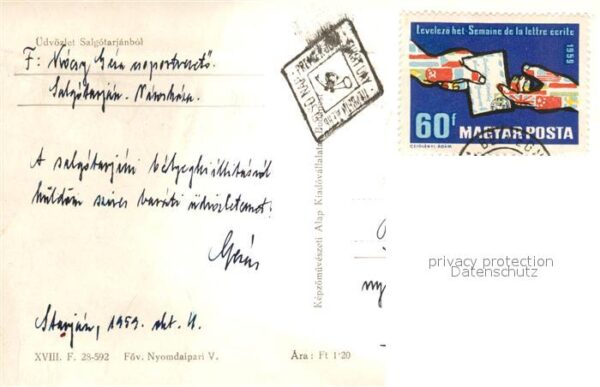 Üdvözlet Salgótarjánból
F: Géza
Salgótarján. Városháza.
A salgótarjáni bélyegkiállításról
küldöm szíves baráti üdvözletemet:
Géza
Starján, 1959. okt. 11.
XVIII. F. 28-592 Föv. Nyomdaipari V. Ára: Ft 1·20
Képzőművészeti Alap Kiadóvállalata,
Levelező hét - Semaine de la lettre écrite
1959
60f
MAGYAR POSTA
privacy protection
Datenschutz